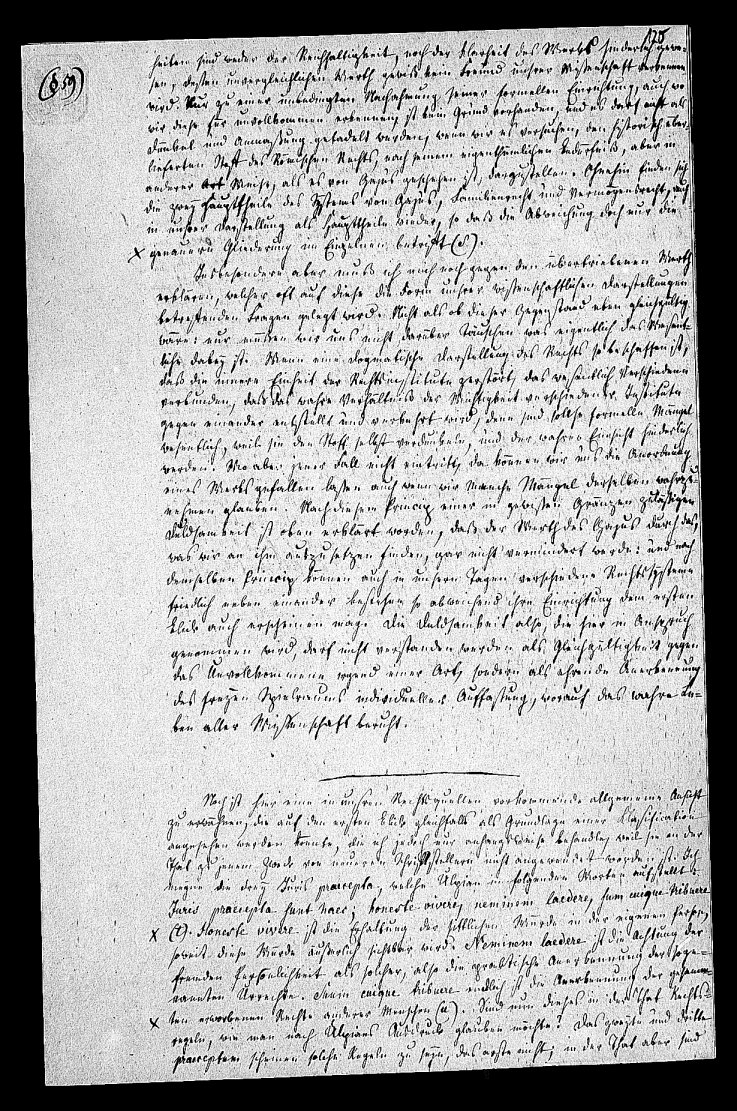 (§ 59)
125
heiten sind weder der Reichhaltigkeit, noch der Klarheit des Werks hinderlich gewe-
sen, dessen unvergleichlichen Werth gewiß kein Freund unsrer Wissenschaft verkennen
wird. Nur zu einer unbedingten Nachahmung seiner formellen Einrichtung, auch wo
wir diese für unvollkommen erkennen, ist kein Grund vorhanden, und es darf nicht als
Dünkel und Anmaßung getadelt werden, wenn wir es versuchen, den historisch über-
lieferten Stoff des Römischen Rechts, nach seinem eigenthümlichen Bedürfniß, aber in
anderer Art Weise, als es von Gajus geschehen ist, darzustellen. Ohnehin finden sich
die zwey Haupttheile des Systems von Gajus, Familienrecht und Vermögensrecht, auch
in unsrer Darstellung als Haupttheile wieder, so daß die Abweichung doch nur die
x genauere Gliederung im Einzelnen betrifft (s).
Insbesondere aber muß ich mich noch gegen den übertriebenen Werth
erklären, welcher oft auf diese die Form unsrer wissenschaftlichen Darstellungen
betreffenden Fragen gelegt wird. Nicht als ob dieser Gegenstand eben gleichgültig
wäre: nur müssen wir uns nicht darüber täuschen was eigentlich das Wesent-
liche dabey ist. Wenn eine dogmatische Darstellung des Rechts so beschaffen ist,
daß die innere Einheit der Rechtsinstitute zerstört, das wesentlich Verschiedene
verbunden, daß das wahre Verhältniß der Wichtigkeit verschiedener Institute
gegen einander entstellt und verkehrt wird, dann sind solche formelle Mängel
wesentlich, weil sie den Stoff selbst verdunkeln, und der wahren Einsicht hinderlich
werden. Wo aber jener Fall nicht eintritt, da können wir uns die Anordnung
eines Werks gefallen lassen auch wenn wir manche Mängel derselben wahrzu-
nehmen glauben. Nach diesem Princip einer in gewissen Gränzen zulässigen
Duldsamkeit ist oben erklärt worden, daß der Werth des Gajus durch das,
was wir an ihm auszusetzen finden, gar nicht vermindert werde: und nach
demselben Princip können auch in unsern Tagen verschiedene Rechtssysteme
friedlich neben einander bestehen so abweichend ihre Einrichtung dem ersten
Blick auch erscheinen mag. Die Duldsamkeit also, die hier in Anspruch
genommen wird darf nicht verstanden werden als Gleichgültigkeit gegen
das Unvollkommene irgend einer Art, sondern als ehrende Anerkennung
des freyen Spielraums individueller Auffassung, worauf das wahre Le-
ben aller Wissenschaft beruht.
Noch ist hier eine in unsren Rechtsquellen vorkommende allgemeine Ansicht
zu erwähnen, die auf den ersten Blick gleichfalls als Grundlage einer Klassification
angesehen werden könnte, die ich jedoch nur anhangsweise behandle, weil sie in der
That zu jenem Zweck von neueren Schriftstellern nicht angewendet worden ist. Ich
meyne die drey Juris praecepta, welche Ulpian in folgenden Worten aufstellt:
Juris praecepta sunt haec, honeste vivere, neminem laedere, suum cuique tribuere
x (t). Honeste vivere ist die Erhaltung der sittlichen Würde in der eigenen Person,
soweit diese Würde äußerlich sichtbar wird. Neminem laedere ist die Achtung der
fremden Persönlichkeit als solcher, also die praktische Anerkennung der soge-
nannten Urrechte. Suum cuique tribuere endlich ist die Anerkennung der gesamm-
x ten erworbenen Rechte anderer Menschen (u). Sind nun dieses in der That Rechts-
regeln, wie man nach Ulpians Ausdruck glauben möchte? Das zweyte und dritte
praeceptum scheinen solche Regeln zu seyn, das erste nicht; in der That aber sind